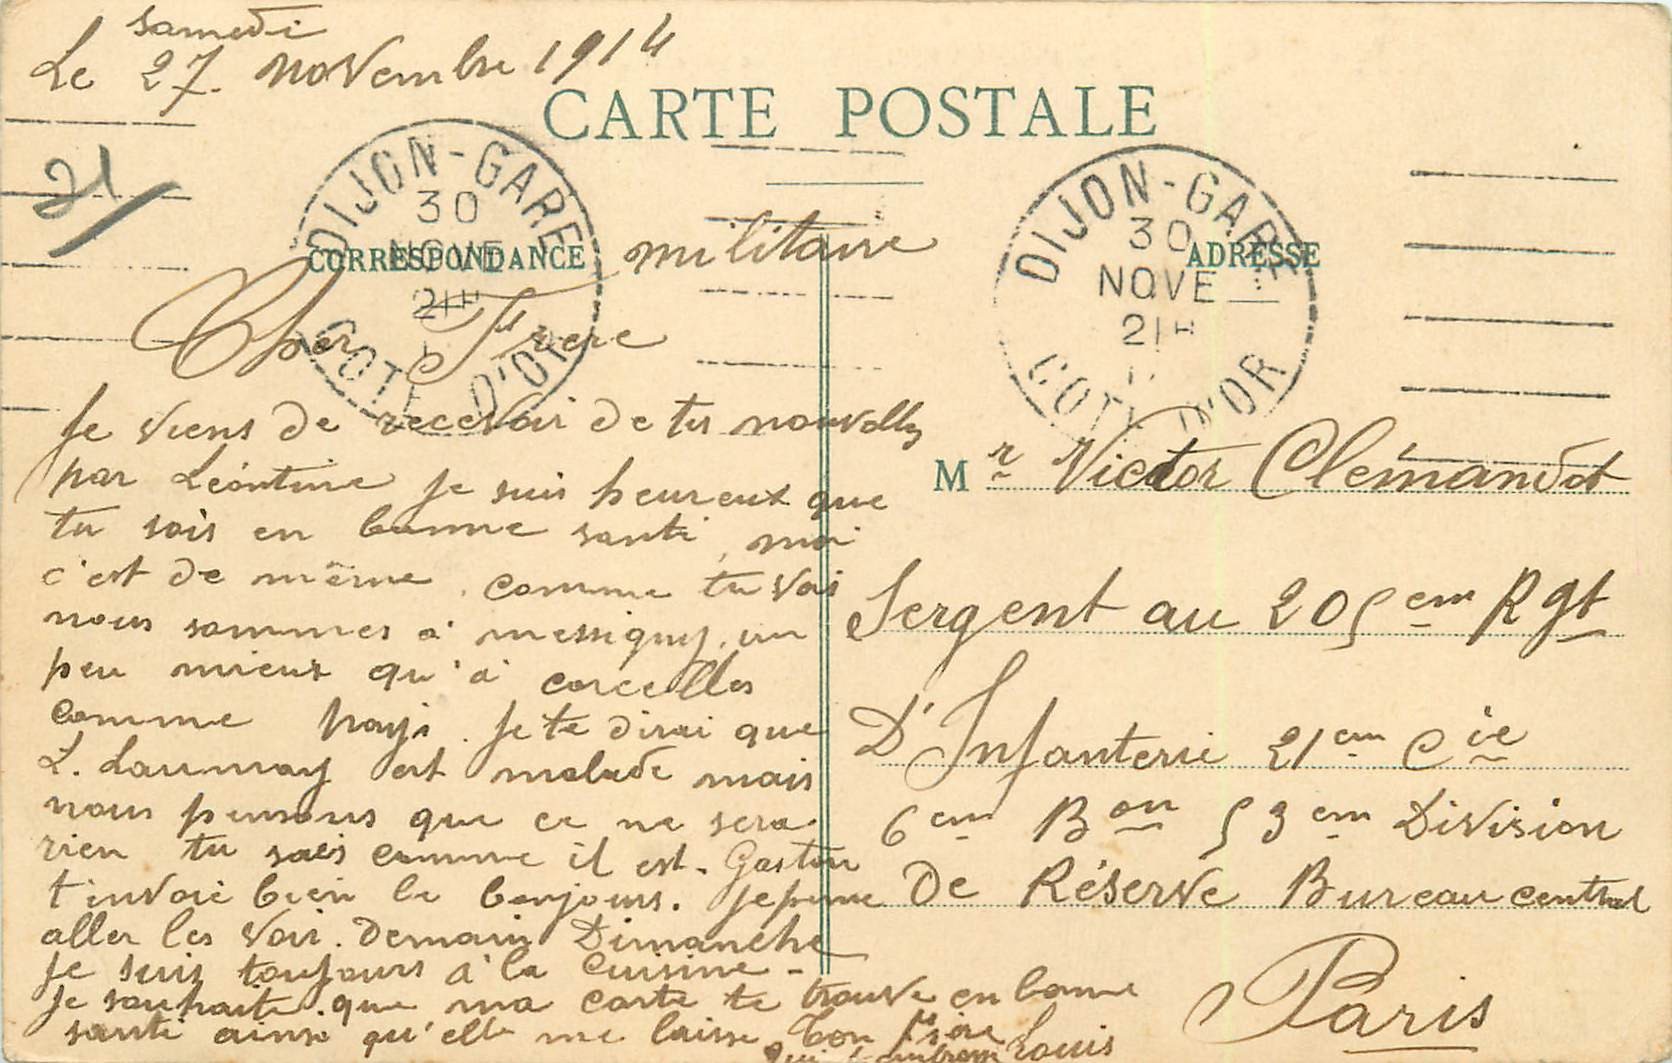 samedi
Le 27. Novembre 1914
CARTE POSTALE
21
DIJON-GARE
30
NOVE
21H
COTE D'OR
DIJON-GARE
30
NOVE
21H
COTE D'OR
CORRESPONDANCE
militaire
ADRESSE
Cher Frere
Je viens de recevoir de tes nouvelles
par Léontine je suis heureux que
tu sois en bonne santé, moi
c'est de même, comme tu vois
nous sommes à messigny, un
peu mieux qu'à corcelles
comme pays. Je te dirai que
L. Launnay est malade mais
nous pensons que ce ne sera
rien tu sais comme il est. Gaston
t'invoie bien le bonjours. Je pense
aller les voir. Demain Dimanche
je suis toujours à la cuisine -
Je souhaite que ma carte te trouve en bonne
santé ainsi qu'elle me laisse Ton frère
Louis
Mr Victor Clémandot
Sergent au 205em Rgt
D'Infanterie 21em Cie
6em Bon 53em Division
De Réserve Bureau central
Paris